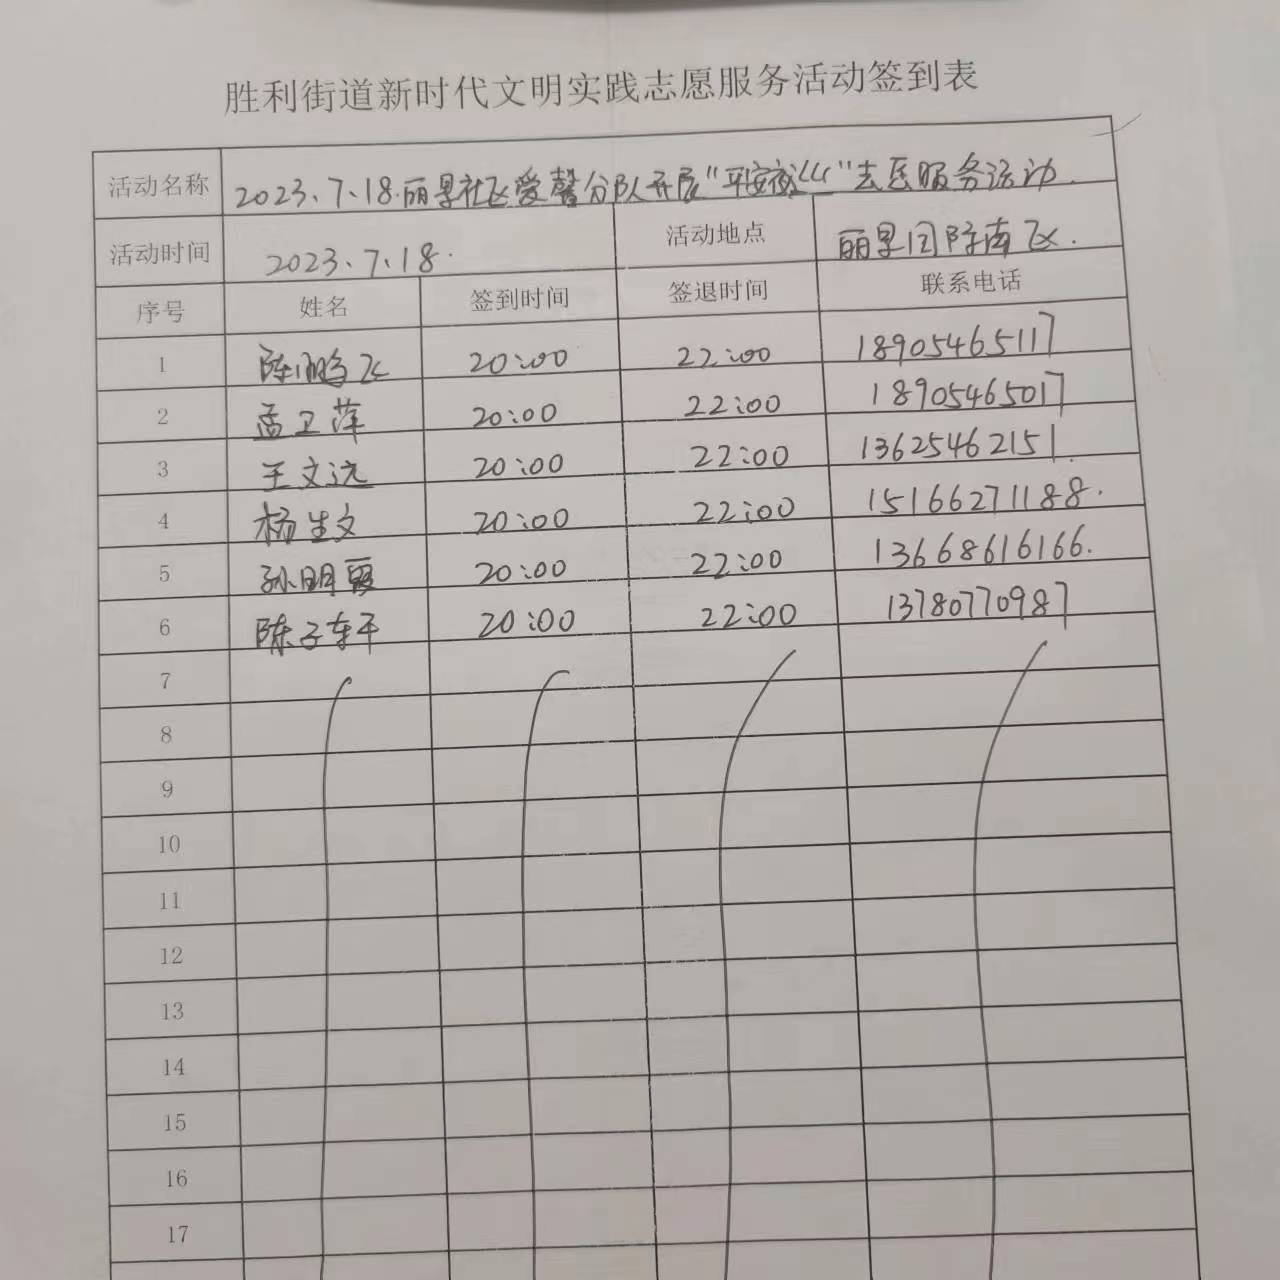 胜利街道新时代文明实践志愿服务活动签到表
活动名称 2023、7、18.丽景社区爱馨分队开展“平安夜巡”志愿服务活动.
活动时间 2023、7、18. 活动地点 丽景园际南区.
序号 姓名 签到时间 签退时间 联系电话
1 陈鹏飞 20:00 22:00 18905465117
2 孟卫萍 20:00 22:00 18905465017
3 王文远 20:00 22:00 13625462151.
4 杨生文 20:00 22:00 15166271188.
5 孙明霞 20:00 22:00 13668616166.
6 陈子轩 20:00 22:00 13780770987
7
8
9
10
11
12
13
14
15
16
17